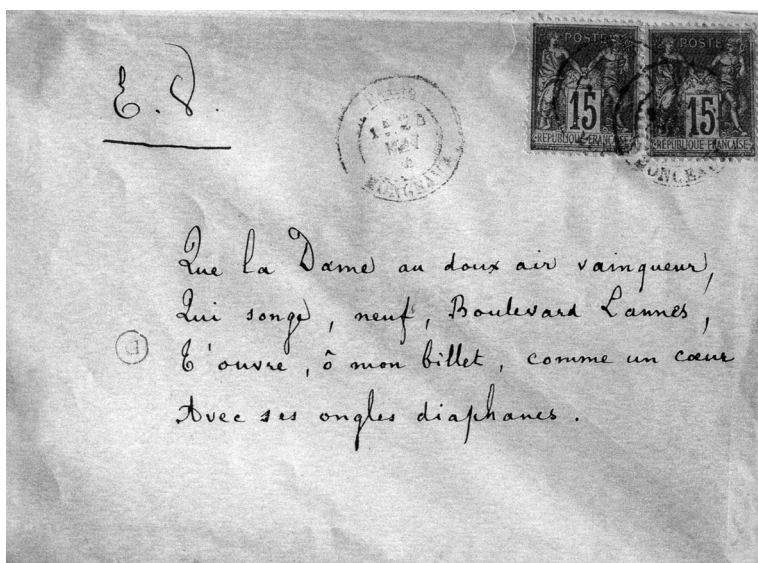 E. V.
POSTE 15 RÉPUBLIQUE FRANÇAISE
POSTE 15 RÉPUBLIQUE FRANÇAISE
MONCEAU
Que la Dame au doux air vainqueur,
Qui songe, neuf, Boulevard Lannes,
T'ouvre, ô mon billet, comme un cœur
Avec ses ongles diaphanes.
D